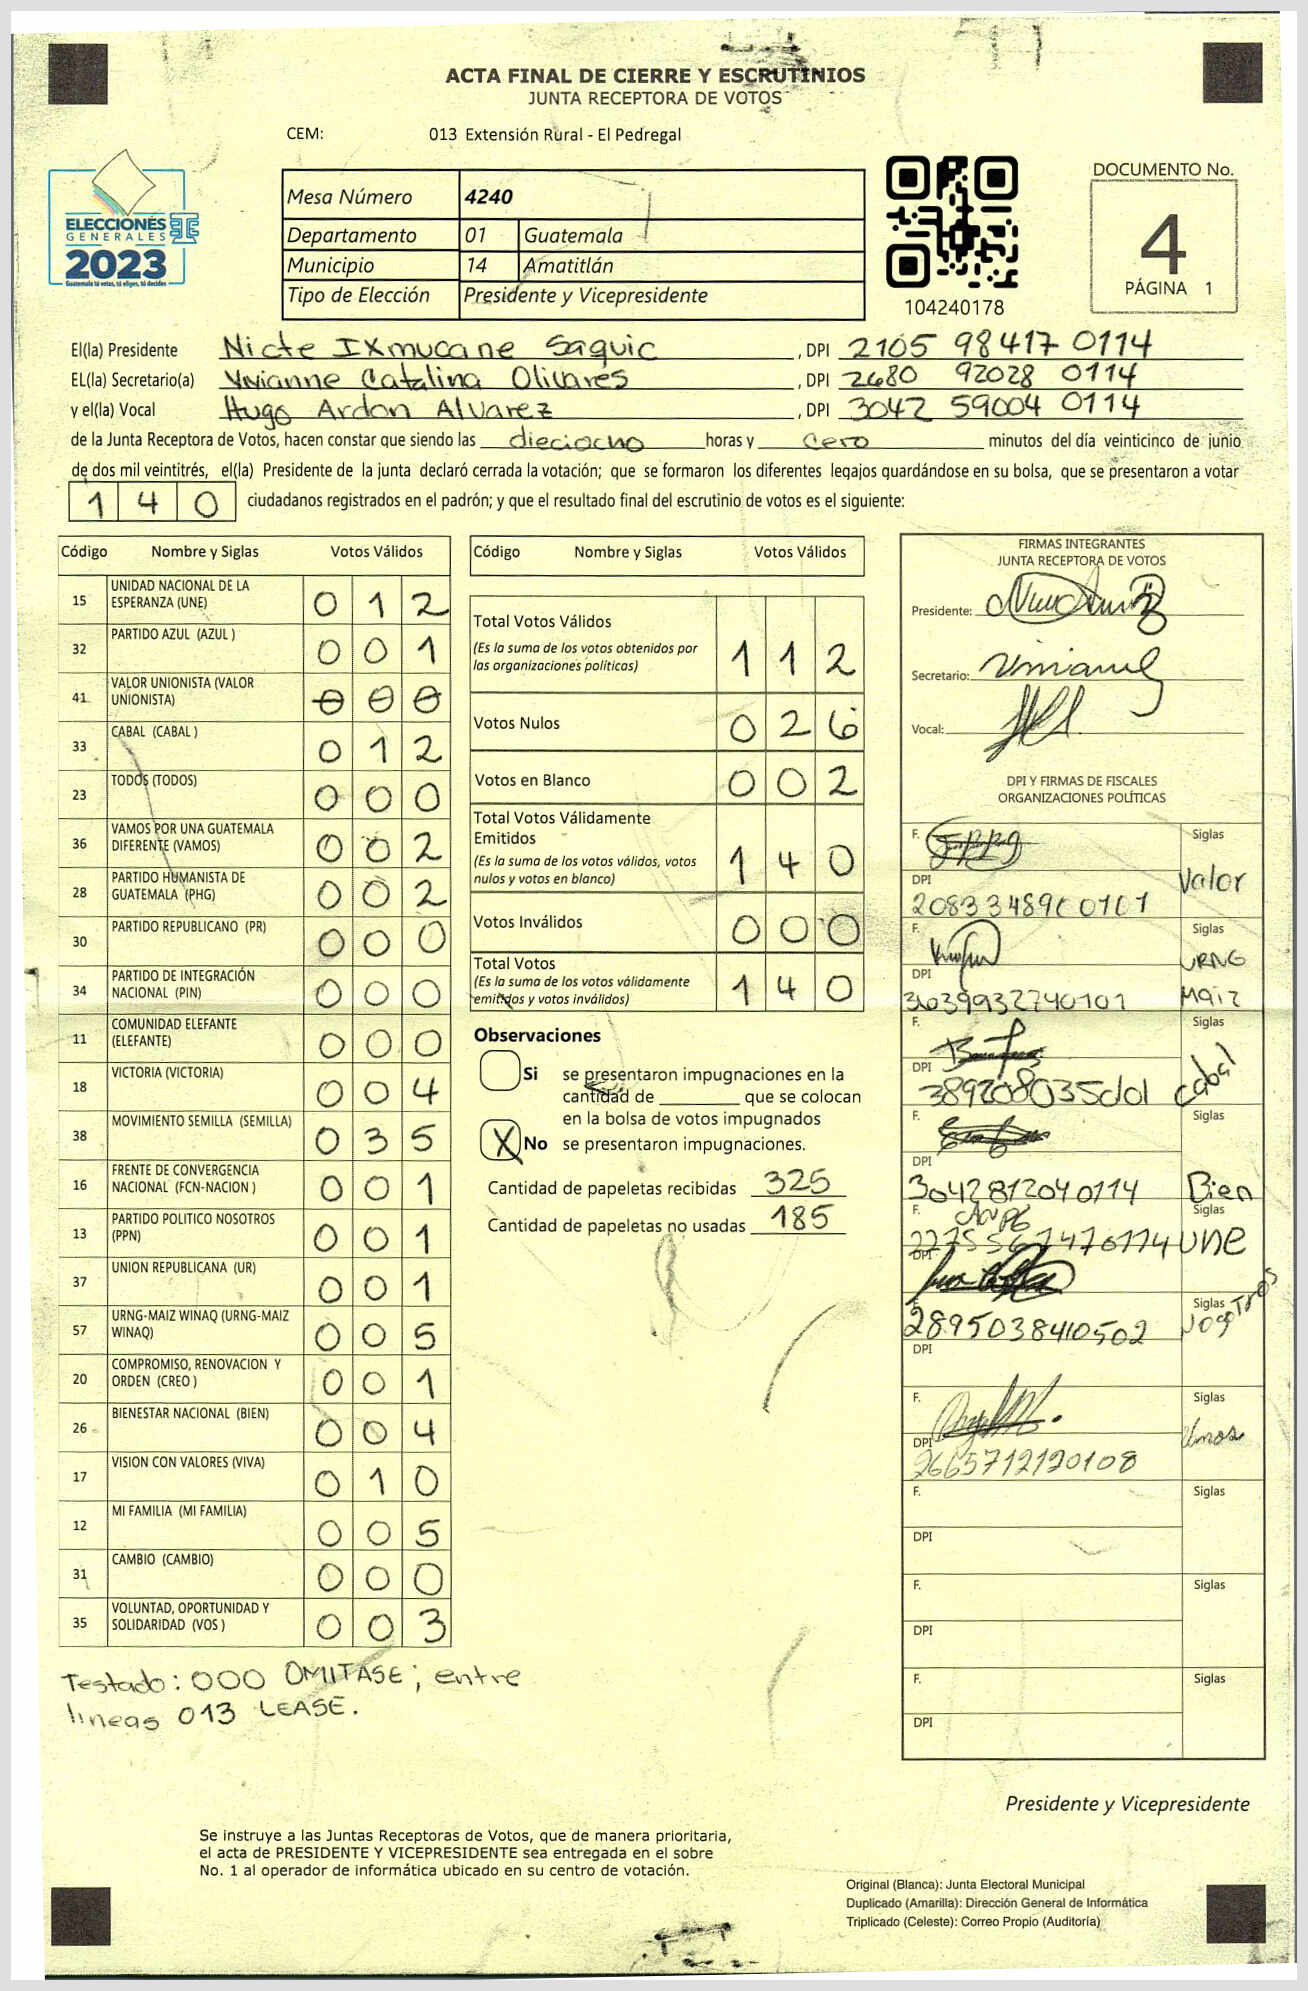 ACTA FINAL DE CIERRE Y ESCRUTINIOS
JUNTA RECEPTORA DE VOTOS
CEM: 013 Extensión Rural - El Pedregal
ELECCIONES
GENERALES
2023
Guatemala tú votas, tú eliges, tú decides
Mesa Número 4240
Departamento 01 Guatemala
Municipio 14 Amatitlán
Tipo de Elección Presidente y Vicepresidente
104240178
DOCUMENTO No.
4
PÁGINA 1
El(la) Presidente Nicte Ixmucane Saquic , DPI 2105 98417 0114
EL(la) Secretario(a) Vivianne Catalina Olivares , DPI 2680 92028 0114
y el(la) Vocal Hugo Ardon Alvarez , DPI 3042 59004 0114
de la Junta Receptora de Votos, hacen constar que siendo las dieciocho horas y cero minutos del día veinticinco de junio
de dos mil veintitrés, el(la) Presidente de la junta declaró cerrada la votación; que se formaron los diferentes legajos guardándose en su bolsa, que se presentaron a votar
1 4 0 ciudadanos registrados en el padrón; y que el resultado final del escrutinio de votos es el siguiente:
Código Nombre y Siglas Votos Válidos
15 UNIDAD NACIONAL DE LA ESPERANZA (UNE) 0 1 2
32 PARTIDO AZUL (AZUL ) 0 0 1
41 VALOR UNIONISTA (VALOR UNIONISTA) 0 0 0
33 CABAL (CABAL ) 0 1 2
23 TODOS (TODOS) 0 0 0
36 VAMOS POR UNA GUATEMALA DIFERENTE (VAMOS) 0 0 2
28 PARTIDO HUMANISTA DE GUATEMALA (PHG) 0 0 2
30 PARTIDO REPUBLICANO (PR) 0 0 0
34 PARTIDO DE INTEGRACIÓN NACIONAL (PIN) 0 0 0
11 COMUNIDAD ELEFANTE (ELEFANTE) 0 0 0
18 VICTORIA (VICTORIA) 0 0 4
38 MOVIMIENTO SEMILLA (SEMILLA) 0 3 5
16 FRENTE DE CONVERGENCIA NACIONAL (FCN-NACION ) 0 0 1
13 PARTIDO POLITICO NOSOTROS (PPN) 0 0 1
37 UNION REPUBLICANA (UR) 0 0 1
57 URNG-MAIZ WINAQ (URNG-MAIZ WINAQ) 0 0 5
20 COMPROMISO, RENOVACION Y ORDEN (CREO ) 0 0 1
26 BIENESTAR NACIONAL (BIEN) 0 0 4
17 VISION CON VALORES (VIVA) 0 1 0
12 MI FAMILIA (MI FAMILIA) 0 0 5
31 CAMBIO (CAMBIO) 0 0 0
35 VOLUNTAD, OPORTUNIDAD Y SOLIDARIDAD (VOS ) 0 0 3
Testado: 000 OMITASE; entre
lineas 013 LEASE.
Código Nombre y Siglas Votos Válidos
Total Votos Válidos 1 1 2
(Es la suma de los votos obtenidos por
las organizaciones políticas)
Votos Nulos 0 2 6
Votos en Blanco 0 0 2
Total Votos Válidamente
Emitidos 1 4 0
(Es la suma de los votos válidos, votos
nulos y votos en blanco)
Votos Inválidos 0 0 0
Total Votos 1 4 0
(Es la suma de los votos válidamente
emitidos y votos inválidos)
Observaciones
Si se presentaron impugnaciones en la
cantidad de que se colocan
en la bolsa de votos impugnados
X No se presentaron impugnaciones.
Cantidad de papeletas recibidas 325
Cantidad de papeletas no usadas 185
FIRMAS INTEGRANTES
JUNTA RECEPTORA DE VOTOS
Presidente:
Secretario:
Vocal:
DPI Y FIRMAS DE FISCALES
ORGANIZACIONES POLÍTICAS
F. Siglas
DPI Valor
F. Siglas
DPI URNG
Maiz
F. Siglas
DPI Cabal
F. Siglas
DPI
3042812040114 Bien
F. Siglas
DPI une
F. Siglas
2895038410502
DPI
F. Siglas
DPI
2665712120108
F. Siglas
DPI
F. Siglas
DPI
F. Siglas
DPI
Presidente y Vicepresidente
Se instruye a las Juntas Receptoras de Votos, que de manera prioritaria,
el acta de PRESIDENTE Y VICEPRESIDENTE sea entregada en el sobre
No. 1 al operador de informática ubicado en su centro de votación.
Original (Blanca): Junta Electoral Municipal
Duplicado (Amarilla): Dirección General de Informática
Triplicado (Celeste): Correo Propio (Auditoría)